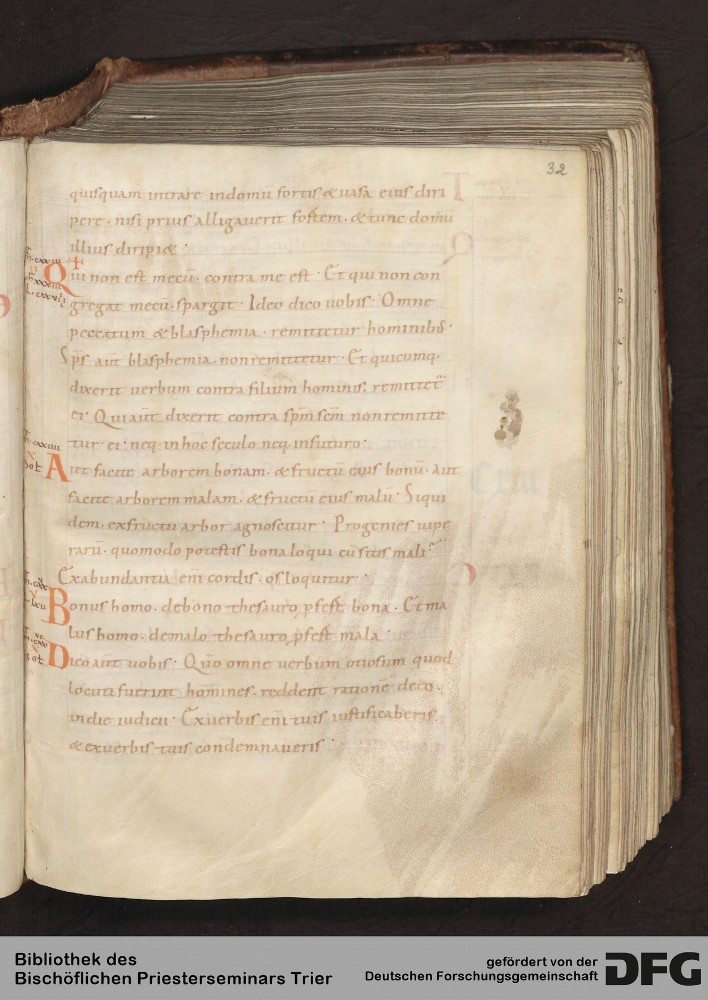 32
quisquam intrare indomū fortis & uasa eius diri
pere · nisi prius alligauerit fortem · & tunc domū
illius diripi& ·
Qui non est mecū · contra me est · Et qui non con
gregat mecū · spargit · Ideo dico uobis · Omne
peccatum & blasphemia · remittetur hominib; ·
Sp̄s aut̄ blasphemia · non remittetur · Et quicumq·
dixerit uerbum contra filium hominis; remittet̄
ei · Qui aut̄ dixerit contra sp̄m sc̄m non remitte
tur ei · neq· in hoc seculo neq· in futuro ·
Aut facite arborem bonam · & fructū eius bonū · aut
facite arborem malam · & fructū eius malū · Siqui
dem · exfructu arbor agnoscitur · Progenies uipe
rarū · quomodo potestis bona loqui cū sitis mali ·
Exabundantia eni̅ cordis · os loquitur ·
Bonus homo · debono thesauro p̱fert bona · Et ma
lus homo · demalo thesauro p̱fert mala ·
Dico aut̄ uobis · Qm̅o omne uerbum otiosum quod
locuti fuerint homines · reddent rationē deeo ·
indie iudicii · Exuerbis eni̅ tuis iustificaberis
& exuerbis tuis condemnaueris ·
Bibliothek des
Bischöflichen Priesterseminars Trier
gefördert von der
Deutschen Forschungsgemeinschaft
DFG